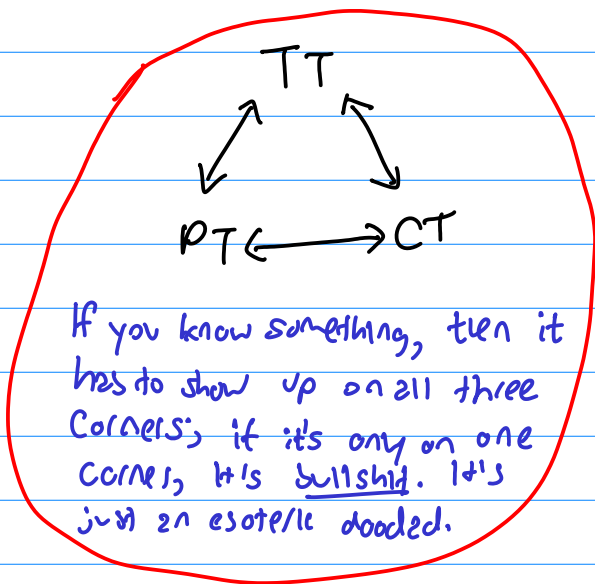 TT
PT CT
If you know something, then it
has to show up on all three
corners; if it's only on one
corner, it's bullshit. It's
just an esoteric